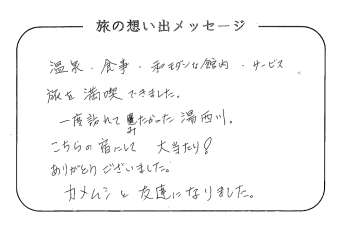 旅の想い出メッセージ
温泉・食事・和モダンな館内・サービス
旅を満喫できました。
一度訪れてみたかった湯西川。
こちらの宿にして 大当たり!
ありがとうございました。
カメムシと友達になりました。